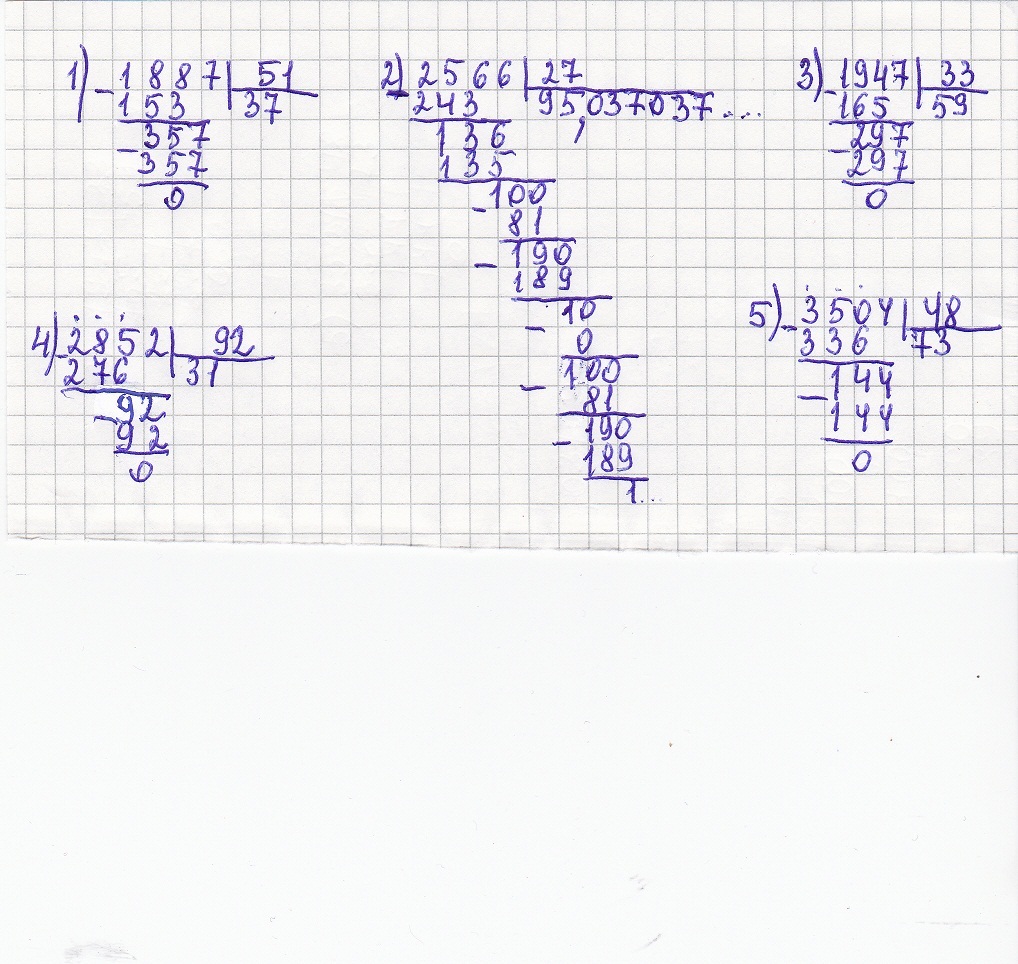 1) - 1887 | 51
153 37
- 357
357
0
2) - 2566 | 27
243 95,037037....
136
135
- 100
81
- 190
189
- 10
0
- 100
81
- 190
189
1...
3) - 1947 | 33
165 59
- 297
297
0
4) - 2852 | 92
276 31
- 92
92
0
5) - 3504 | 48
336 73
- 144
144
0